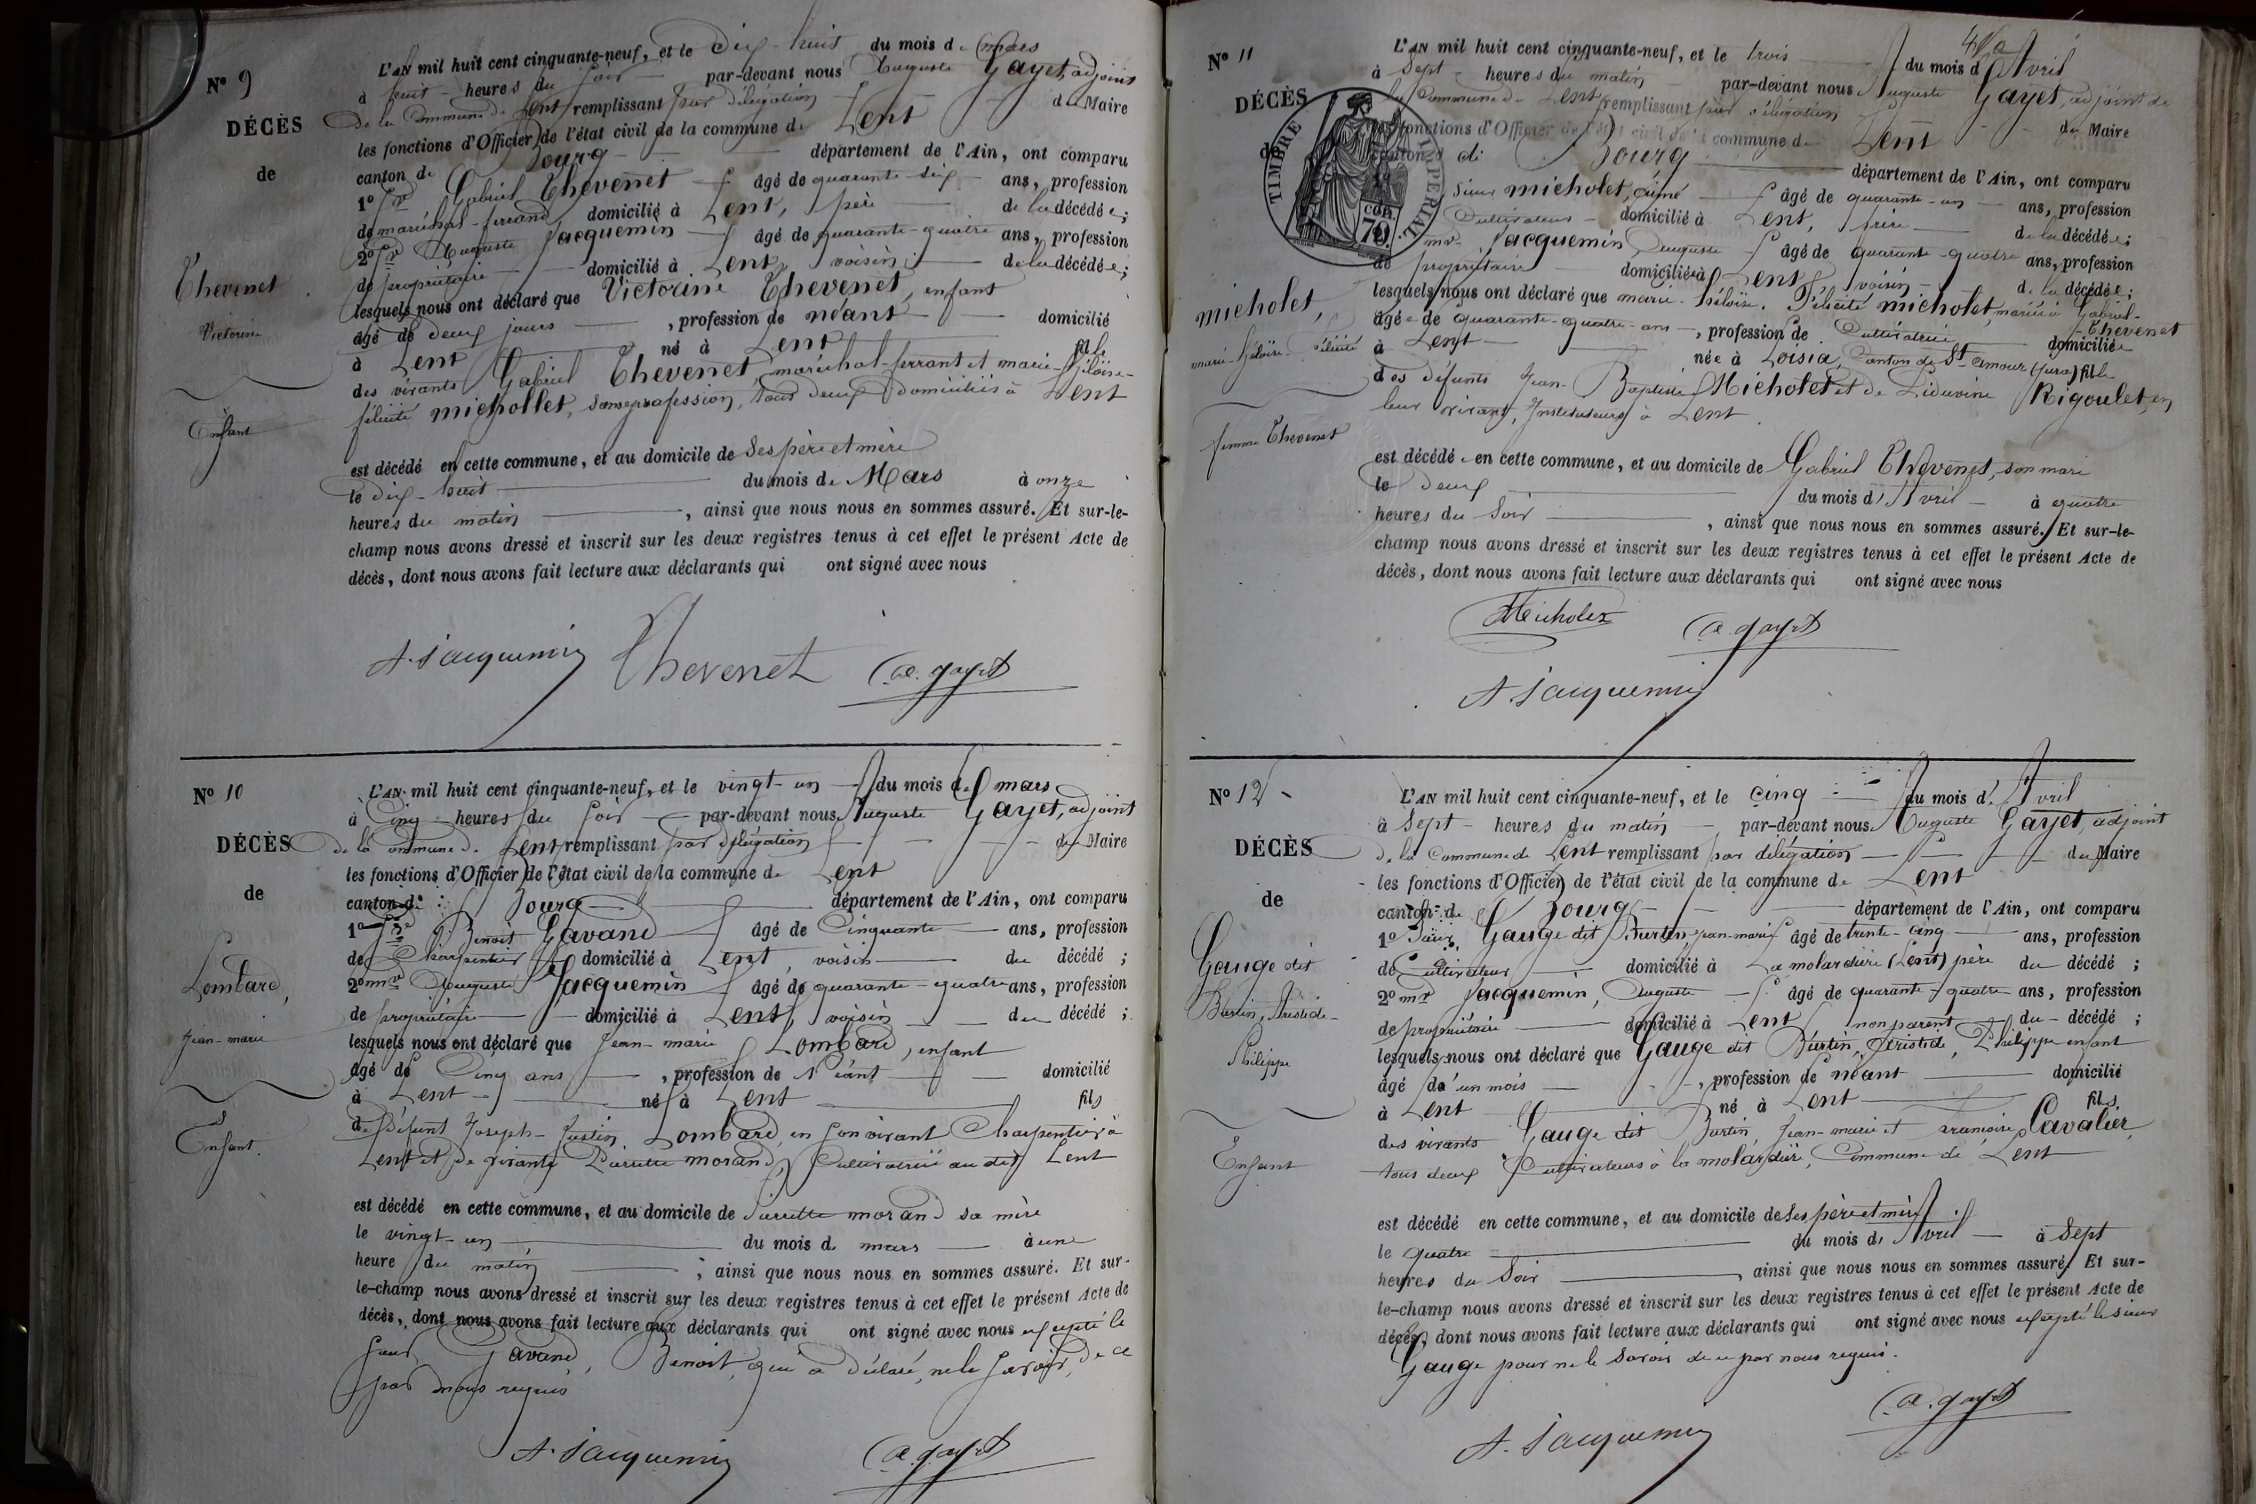 N° 9
DÉCÈS
de
Thevenet
Victorine
Enfant
L'AN mil huit cent cinquante-neuf, et le dix-huit du mois de mars
à huit heures du soir par-devant nous Auguste Gayet, adjoint
de la commune de Lent remplissant par délégation du Maire
les fonctions d'Officier de l'état civil de la commune de Lent
canton de Bourg département de l'Ain, ont comparu
1° Sr Gabriel Thevenet âgé de quarante-six ans, profession
de maréchal-ferrand domicilié à Lent, père de la décédée;
2° Sr Auguste Jacquemin âgé de quarante-quatre ans, profession
de propriétaire domicilié à Lent, voisin de la décédée;
lesquels nous ont déclaré que Victorine Thevenet, enfant
âgé de deux jours, profession de néant domicilié
à Lent né à Lent fille
des vivants Gabriel Thevenet maréchal-ferrant et marie-Héloïse-
félicité michollet, sans profession, tous deux domiciliés à Lent
est décédé en cette commune, et au domicile de ses père et mère
le dix-huit du mois de Mars à onze
heures du matin, ainsi que nous nous en sommes assuré. Et sur-le-
champ nous avons dressé et inscrit sur les deux registres tenus à cet effet le présent Acte de
décès, dont nous avons fait lecture aux déclarants qui ont signé avec nous
A. Jacquemin Thevenet A. gayet
N° 10
DÉCÈS
de
Lombard,
Jean-marie
Enfant.
L'AN mil huit cent cinquante-neuf, et le vingt-un du mois de mars
à Cinq heures du soir par-devant nous Auguste Gayet, adjoint
de la commune de Lent remplissant par délégation du Maire
les fonctions d'Officier de l'état civil de la commune de Lent
canton de Bourg département de l'Ain, ont comparu
1° Sr Benoit Gavand âgé de Cinquante ans, profession
de Charpentier domicilié à Lent, voisin du décédé;
2° mr Auguste Jacquemin âgé de quarante-quatre ans, profession
de propriétaire domicilié à Lent, voisin du décédé;
lesquels nous ont déclaré que Jean-marie Lombard, enfant
âgé de Cinq ans, profession de Néant domicilié
à Lent né à Lent fils
de défunt Joseph-Justin Lombard, en son vivant Charpentier à
Lent et de vivante Pierrette morand, Cultivatrice au dit Lent
est décédé en cette commune, et au domicile de Pierrette morand sa mère
le vingt-un du mois de mars à une
heure du matin, ainsi que nous nous en sommes assuré. Et sur-
le-champ nous avons dressé et inscrit sur les deux registres tenus à cet effet le présent Acte de
décès, dont nous avons fait lecture aux déclarants qui ont signé avec nous excepté le
sieur Gavand, Benoit, qui a déclaré ne le savoir, de ce
par nous requis
A. Jacquemin A. gayet
N° 11
DÉCÈS
de
TIMBRE IMPERIAL
micholet,
marie-héloïse-félicité
femme Thevenet
L'AN mil huit cent cinquante-neuf, et le trois du mois d'Avril
à Sept heures du matin par-devant nous Auguste Gayet, adjoint de
la Commune de Lent remplissant par délégation du Maire
les fonctions d'Officier de l'état civil de la commune de Lent
canton de Bourg département de l'Ain, ont comparu
Sieur micholet, aimé âgé de quarante-un ans, profession
Cultivateur domicilié à Lent, frère de la décédée;
mr Jacquemin Auguste âgé de quarante-quatre ans, profession
de propriétaire domicilié à Lent voisin de la décédée;
lesquels nous ont déclaré que marie-héloïse-félicité micholet, mariée à Gabriel-
Thevenet
âgée de quarante-quatre-ans, profession de Cultivatrice domiciliée
à Lent née à Loisia, Canton de St amour (Jura) fille
des défunts Jean-Baptiste Micholet et de Liduvine Rigoulet, en
leur vivant, Instituteurs à Lent
est décédée en cette commune, et au domicile de Gabriel Thevenet, son mari
le deux du mois d'Avril à quatre
heures du Soir, ainsi que nous nous en sommes assuré. Et sur-le-
champ nous avons dressé et inscrit sur les deux registres tenus à cet effet le présent Acte de
décès, dont nous avons fait lecture aux déclarants qui ont signé avec nous
Micholet A. gayet
A. Jacquemin
N° 12
DÉCÈS
de
Gauge dit
Burtin, Aristide-
Philippe
Enfant
L'AN mil huit cent cinquante-neuf, et le cinq du mois d'Avril
à Sept heures du matin par-devant nous Auguste Gayet, adjoint
de la Commune de Lent remplissant par délégation du Maire
les fonctions d'Officier de l'état civil de la commune de Lent
canton de Bourg département de l'Ain, ont comparu
1° Sieur Gauge dit Burtin, Jean-marie âgé de trente-cinq ans, profession
de Cultivateur domicilié à La molardière (Lent) père du décédé;
2° mr Jacquemin, Auguste âgé de quarante-quatre ans, profession
de propriétaire domicilié à Lent non parent du décédé;
lesquels nous ont déclaré que Gauge dit Burtin, Aristide, Philippe enfant
âgé d'un mois, profession de néant domicilié
à Lent né à Lent fils
des vivants Gauge dit Burtin Jean-marie et Cavalier,
tous deux Cultivateurs à la molardière, Commune de Lent
est décédé en cette commune, et au domicile de ses père et mère
le quatre du mois d'Avril à Sept
heures du Soir, ainsi que nous nous en sommes assuré. Et sur-
le-champ nous avons dressé et inscrit sur les deux registres tenus à cet effet le présent Acte de
décès, dont nous avons fait lecture aux déclarants qui ont signé avec nous excepté le sieur
Gauge pour ne le Savoir de ce par nous requis.
A. Jacquemin A. gayet